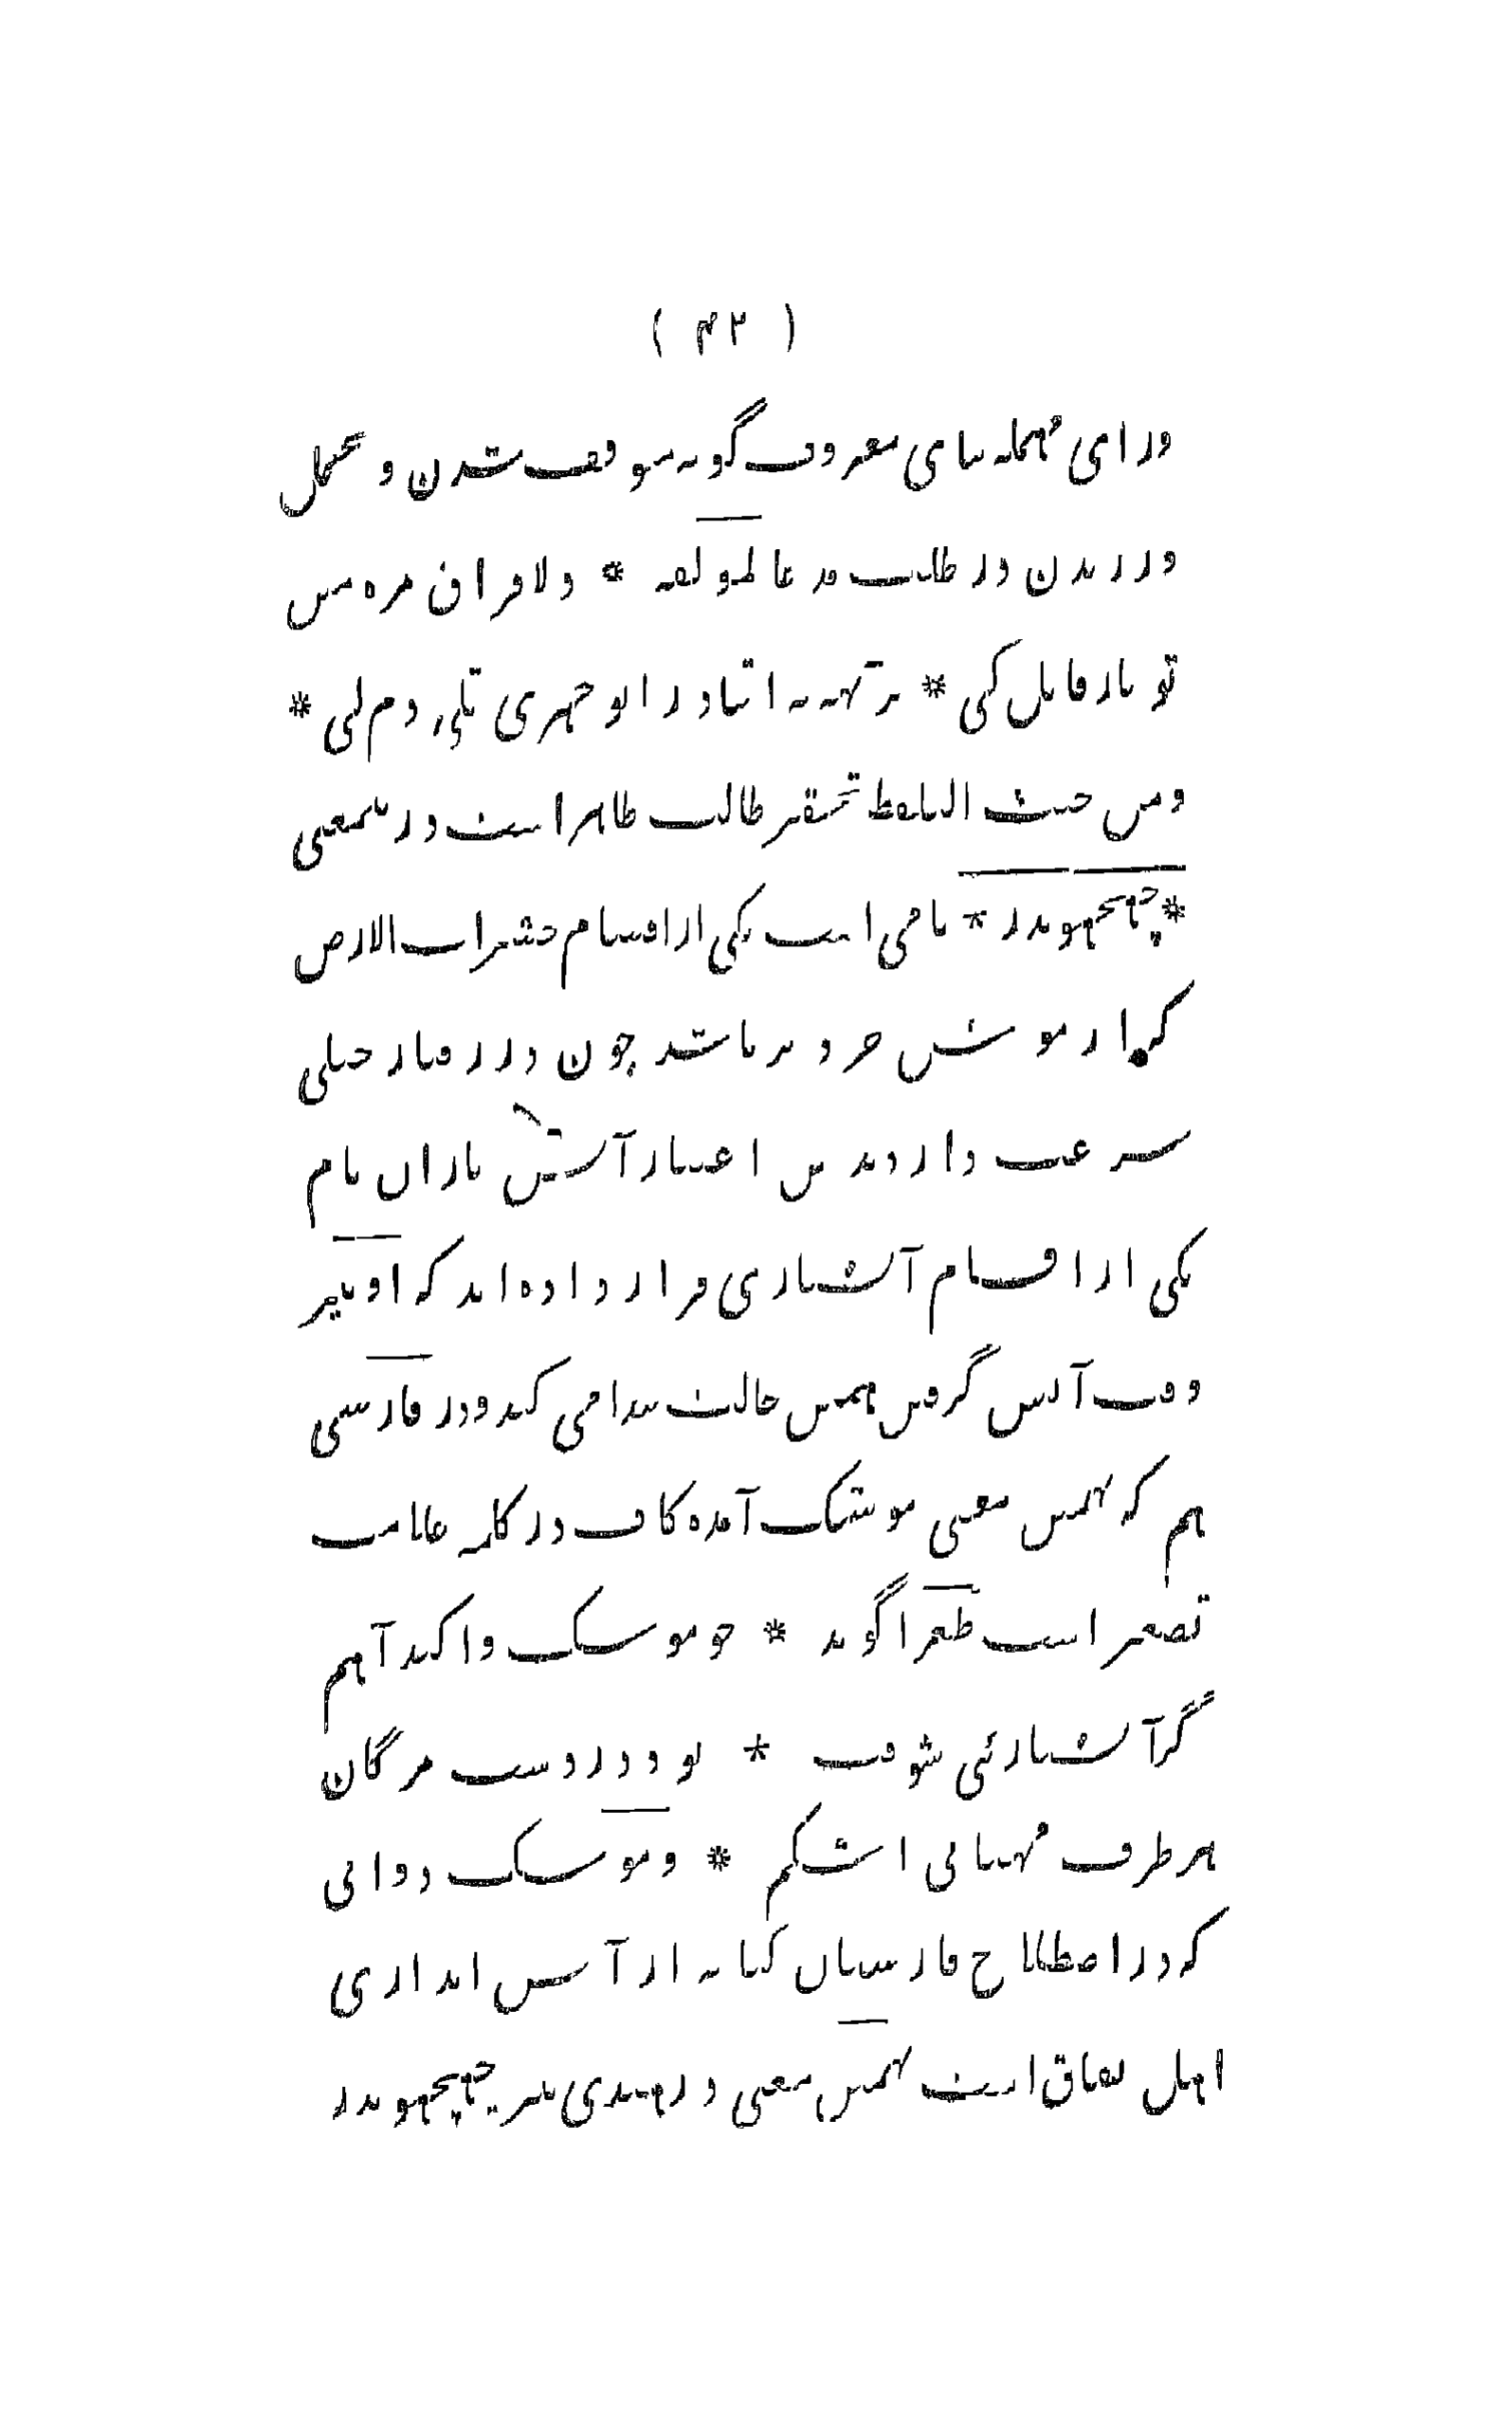 ( ۴۲ )
ورای مهمله بیای معروف گونه موقف شدن و تحمل
ورزیدن در طلب مدعا لمولفه * دلا فراق مره مین
تو یار قابل کی * نر تهه نه اتنا ذرا او جهری تلی دم لی *
ومن حیث التلفظ تحقیر طالب ظاهر است درینمعنی
* چهچهوندر * نامی است یکی از اقسام حشرات الارض
که از موش خرد تر باشد چون در رفتار خیلی
سرعت دارد بدین اعتبار آتش بازان نام
یکی از اقسام آتشبازی قرار داده اند که او نیز
وقت آتش گرفتن همین حالت پیدا می کند و در فارسی
هم که بهمین معنی موشک آمده کاف در کلمه علامت
تصغیر است طغرا گوید * چو موشک وا کند آهم
گر آتشبازئی شوقت * بود در دست مژگان
هر طرف مهتابی اشکم * و موشک دوانی
که در اصطلاح فارسیان کنایه از آتش اندازی
اهل نفاق است بهمین معنی در هندی نیز چهچهوندر